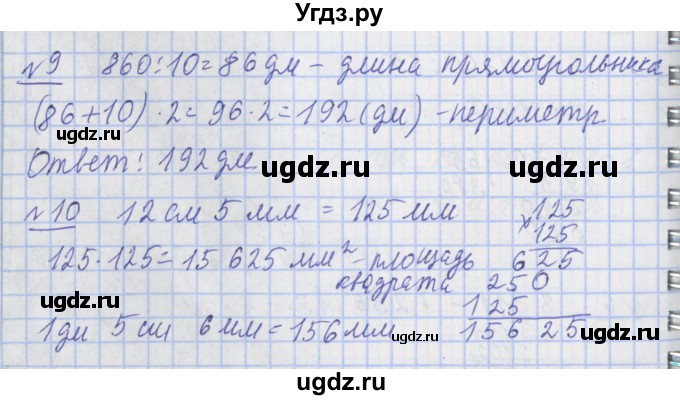 Угдз.ру
№9 860:10=86 дм – длина прямоугольника
(86+10)·2=96·2=192(дм) – периметр
ugdz.ru ugdz.ru
Ответ: 192 дм.
ugdz.ru ugdz.ru
№10 12 см 5 мм = 125 мм
×125
125
125·125=15 625 мм² – площадь квадрата
625
250
125
15625
ugdz.ru ugdz.ru
1 дм 5 см 6 мм = 156 мм
ugdz.ru ugdz.ru
ugdz.ru